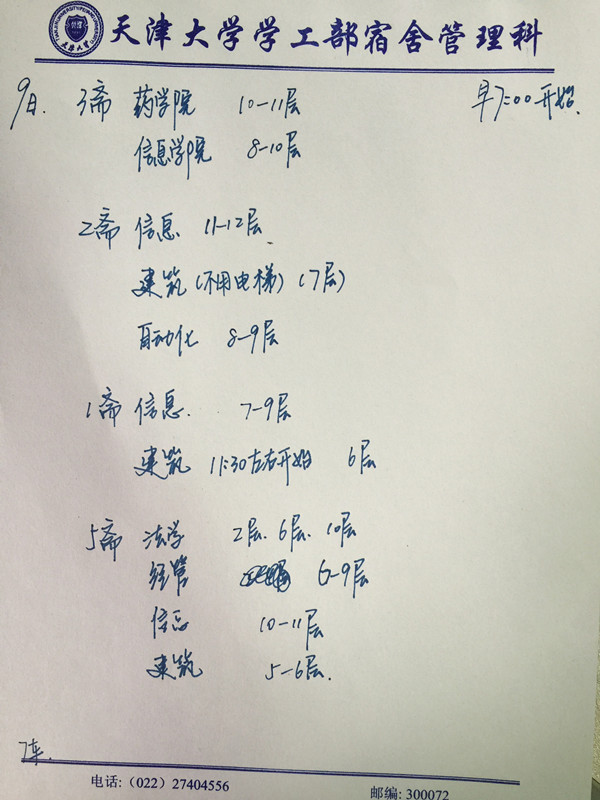 天津大学学工部宿舍管理科
9日. 3斋 药学院 10-11层 早7:00开始.
信息学院 8-10层
2斋 信息 11-12层.
建筑(不用电梯)(7层)
自动化 8-9层
1斋 信息. 7-9层
建筑 11:30左右开始 6层
5斋 法学 2层. 6层. 10层
经管 6-9层
信息 10-11层
建筑 5-6层.
7车.
电话:(022)27404556 邮编: 300072